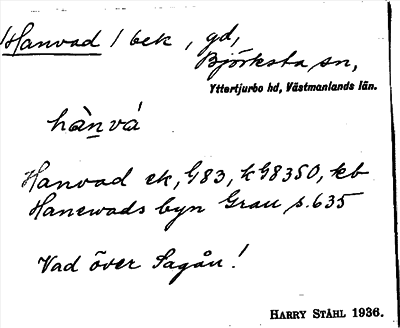 Hanvad / bek, gd,
Björksta sn,
Yttertjurbo hd, Västmanlands län.
hànvá
Hanvad ek, G83, k G8350, kb
Hanewads byn Grau s. 635
Vad över Sagån!
HARRY STÅHL 1936.